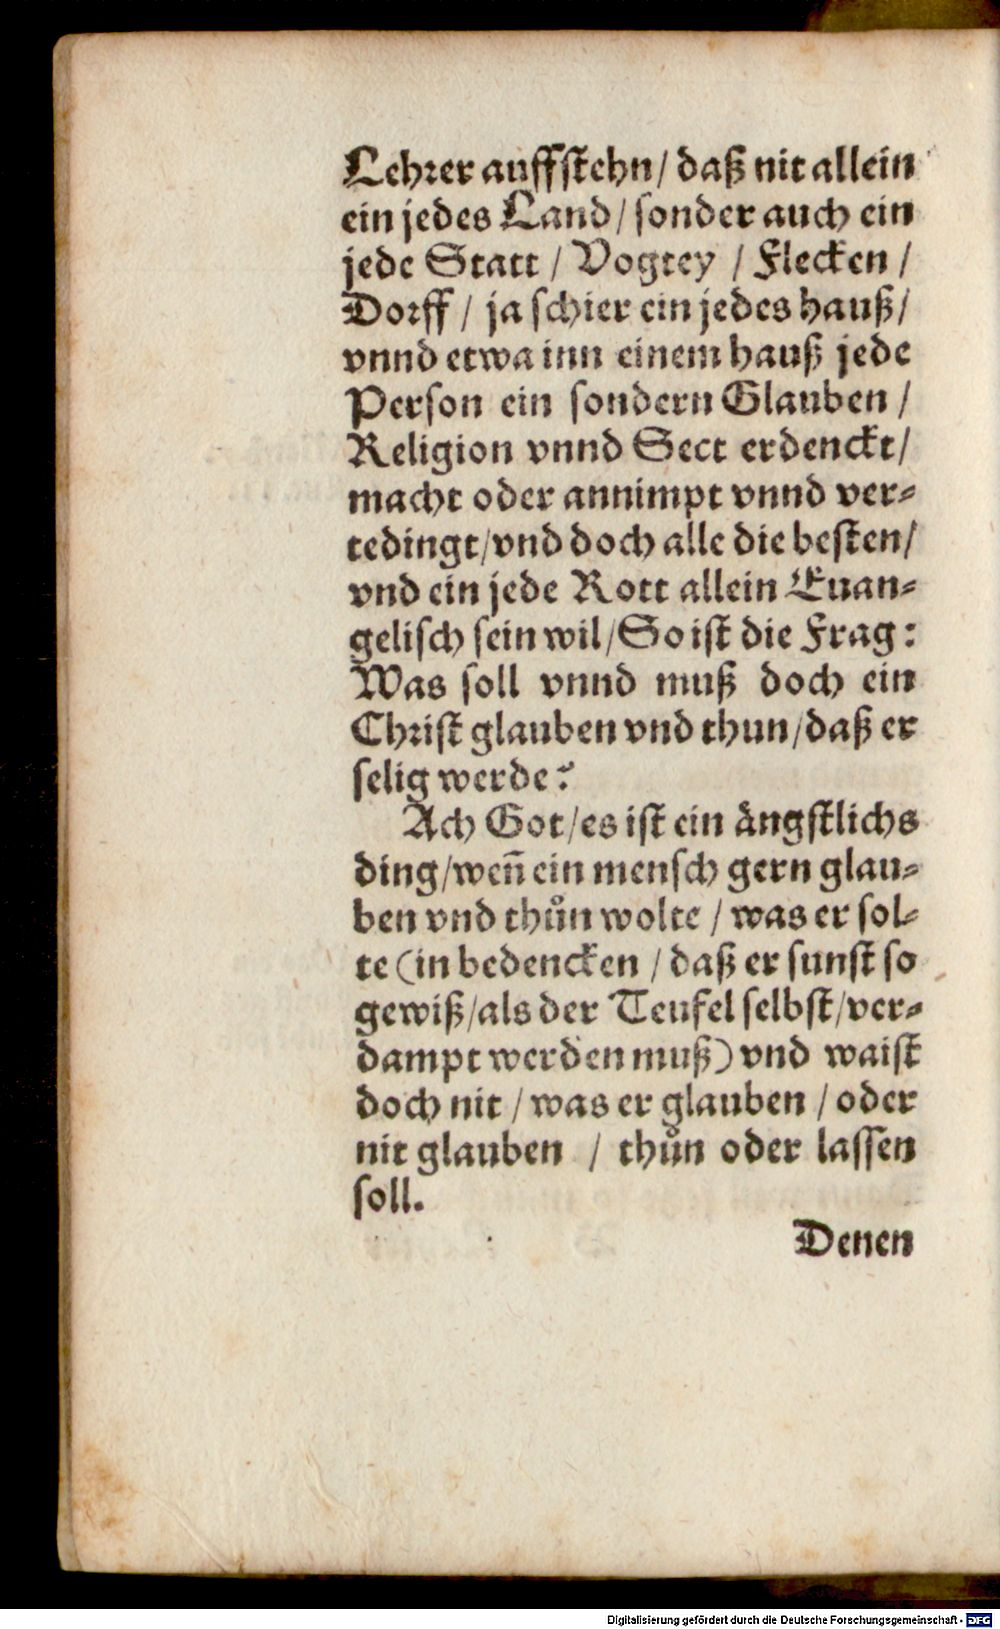 Lehrer auffstehn/ daß nit allein
ein jedes Land/ sonder auch ein
jede Statt / Vogtey / Flecken /
Dorff / ja schier ein jedes hauß/
vnnd etwa inn einem hauß jede
Person ein sondern Glauben /
Religion vnnd Sect erdenckt/
macht oder annimpt vnnd ver⸗
tedingt/vnd doch alle die besten/
vnd ein jede Rott allein Euan⸗
gelisch sein wil/So ist die Frag:
Was soll vnnd muß doch ein
Christ glauben vnd thun/daß er
selig werde?
Ach Got/es ist ein ängstlichs
ding/weñ ein mensch gern glau⸗
ben vnd thůn wolte / was er sol⸗
te (in bedencken / daß er sunst so
gewiß/als der Teufel selbst/ver⸗
dampt werden muß) vnd waist
doch nit / was er glauben / oder
nit glauben / thůn oder lassen
soll.
Denen
Digitalisierung gefördert durch die Deutsche Forschungsgemeinschaft - DFG